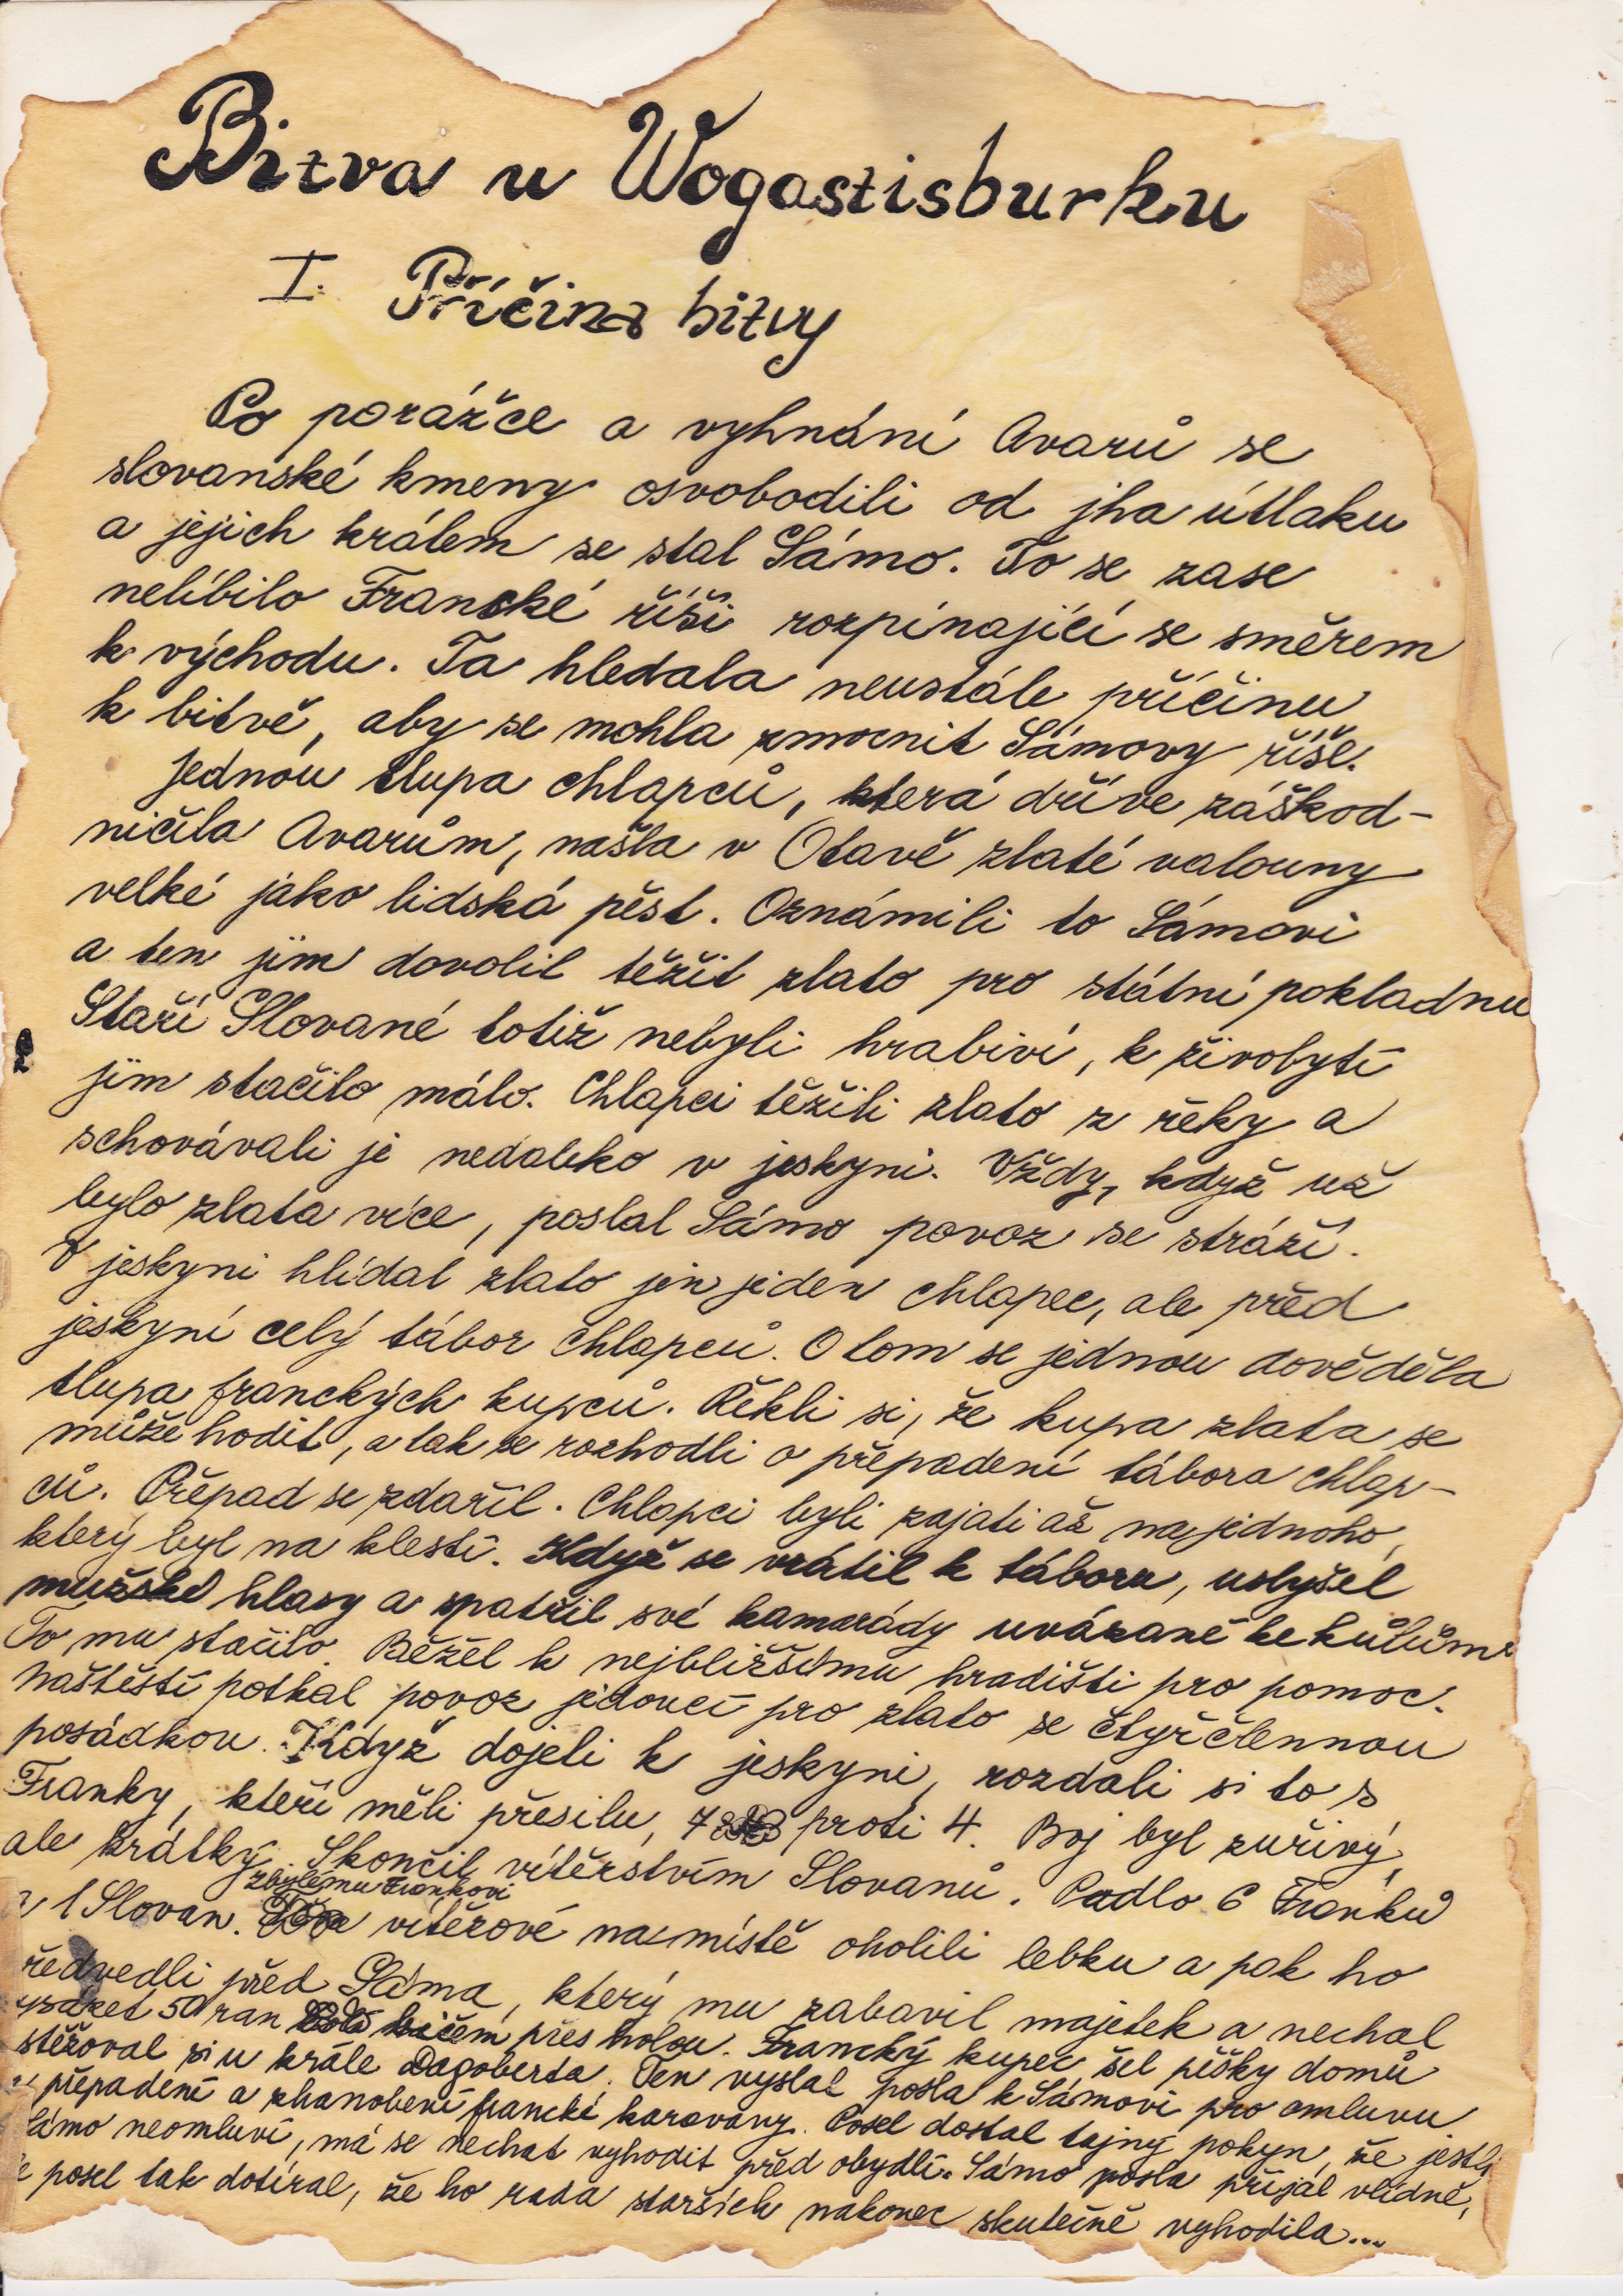 Bitva u Wogastisburku
I. Příčina bitvy
Po porážce a vyhnání Avarů se
slovanské kmeny osvobodili od jha útlaku
a jejich králem se stal Sámo. To se zase
nelíbilo Francké říši rozpínající se směrem
k východu. Ta hledala neustále příčinu
k bitvě, aby se mohla zmocnit Sámovy říše.
Jednou tlupa chlapců, která dříve záškod-
ničila Avarům, našla v Otavě zlaté valouny
velké jako lidská pěst. Oznámili to Sámovi
a ten jim dovolil těžit zlato pro státní pokladnu
Staří Slované totiž nebyli hrabiví, k živobytí
jim stačilo málo. Chlapci těžili zlato z řeky a
schovávali je nedaleko v jeskyni. Vždy, když už
bylo zlata více, poslal Sámo povoz se stráží.
V jeskyni hlídal zlato jen jeden chlapec, ale před
jeskyní celý tábor chlapců. O tom se jednou dověděla
tlupa franckých kupců. Řekli si, že kupa zlata se
může hodit, a tak se rozhodli o přepadení tábora chlap-
ců. Přepad se zdařil. Chlapci byli zajati až na jednoho,
který byl na klestí. Když se vrátil k táboru, uslyšel
mužské hlasy a spatřil své kamarády uvázané ke kůlům.
To mu stačilo. Běžel k nejbližšímu hradišti pro pomoc.
Naštěstí potkal povoz jedoucí pro zlato se čtyřčlennou
posádkou. Když dojeli k jeskyni, rozdali si to s
Franky, kteří měli přesilu, 7 proti 4. Boj byl zuřivý,
ale krátký. Skončil vítěrstvím Slovanů. Padlo 6 Franků
zbylému Frankovi
a 1 Slovan. vítěrové na místě oholili lebku a pak ho
ředvedli před Sáma, který mu zabavil majetek a nechal
ysázet 50 ran bičem přes holou. Francký kupec šel pěšky domů
stěžoval si u krále Dagoberta. Ten vyslal posla k Sámovi pro omluvu
přepadení a zhanobení francké karavany. Posel dostal tajný pokyn, že jestli
Sámo neomluví, má se nechat vyhodit před obydlí. Sámo posla přijal vlídně,
posel tak dotíral, že ho rada starších nakonec skutečně vyhodila...